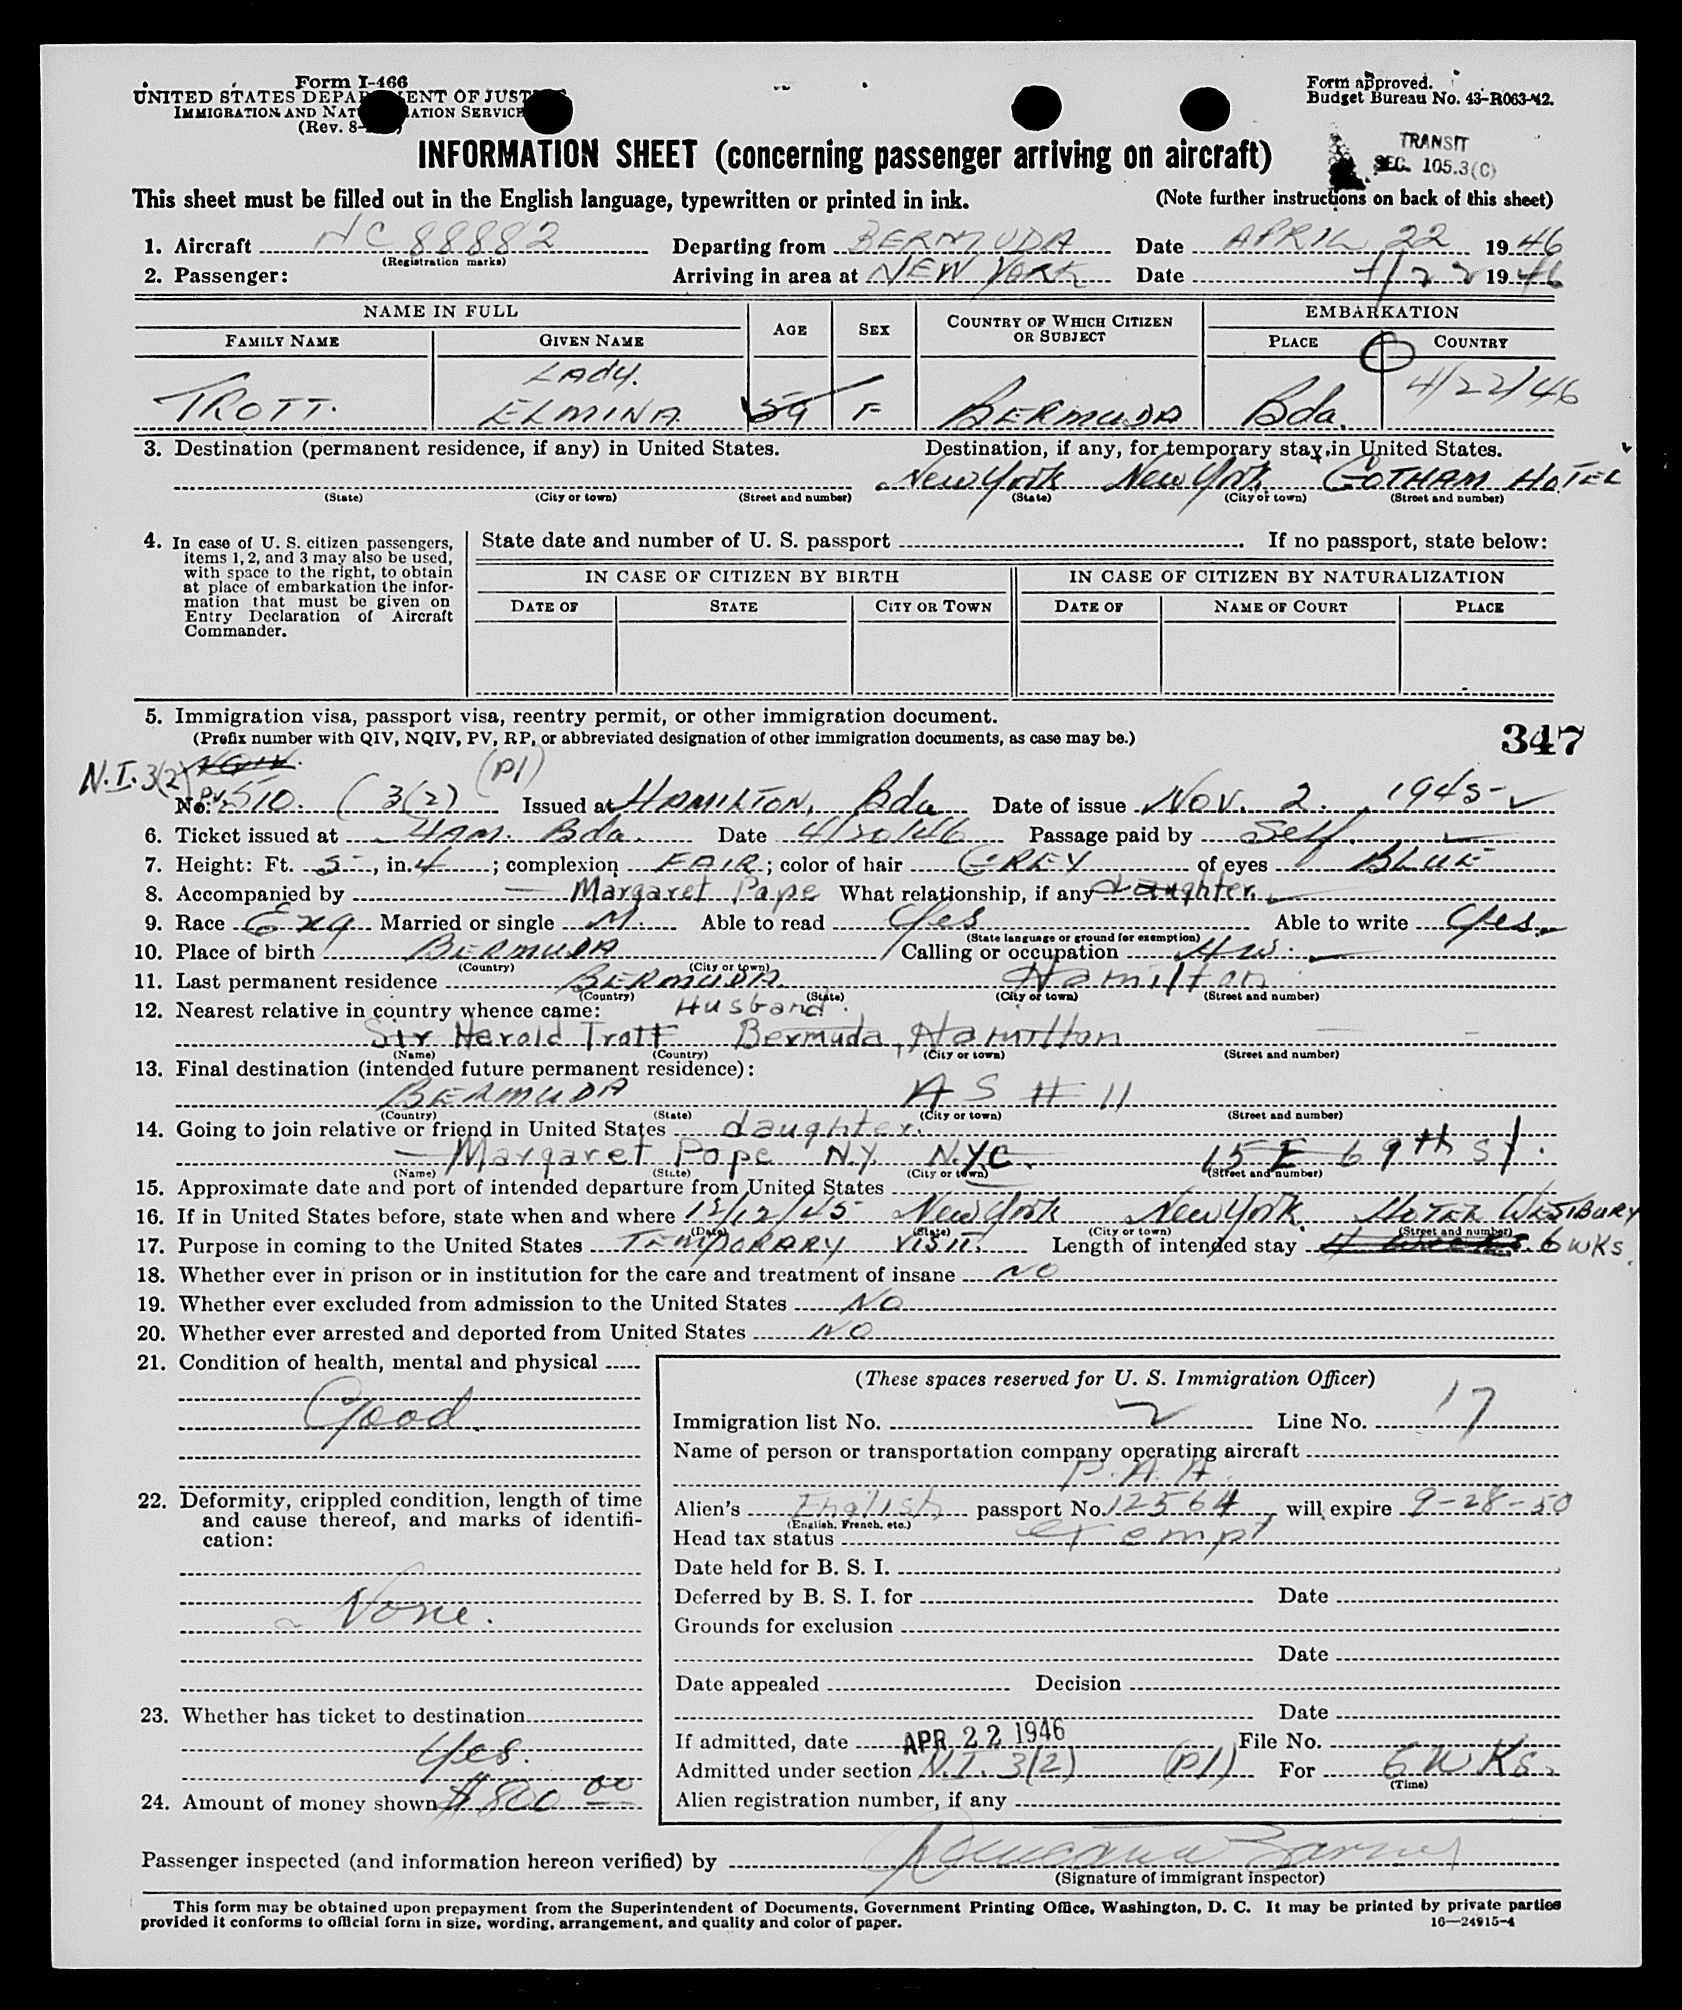 Form I-466
UNITED STATES DEPARTMENT OF JUSTICE
IMMIGRATION AND NATURALIZATION SERVICE
(Rev. 8-
Form approved.
Budget Bureau No. 43-R063-42.
TRANSIT
SEC. 105.3(C)
INFORMATION SHEET (concerning passenger arriving on aircraft)
This sheet must be filled out in the English language, typewritten or printed in ink. (Note further instructions on back of this sheet)
1. Aircraft NC 88882 Departing from BERMUDA Date APRIL 22 1946
(Registration marks)
2. Passenger: Arriving in area at NEW YORK Date 4/22 1946
NAME IN FULL AGE SEX COUNTRY OF WHICH CITIZEN OR SUBJECT EMBARKATION
FAMILY NAME GIVEN NAME PLACE COUNTRY
LADY.
TROTT. ELMINA 59 F BERMUDA Bda. 4/22/46
3. Destination (permanent residence, if any) in United States. Destination, if any, for temporary stay in United States.
New York New York GOTHAM HOTEL
(State) (City or town) (Street and number) (State) (City or town) (Street and number)
4. In case of U. S. citizen passengers, items 1, 2, and 3 may also be used, with space to the right, to obtain at place of embarkation the information that must be given on Entry Declaration of Aircraft Commander.
State date and number of U. S. passport . If no passport, state below:
IN CASE OF CITIZEN BY BIRTH IN CASE OF CITIZEN BY NATURALIZATION
DATE OF STATE CITY OR TOWN DATE OF NAME OF COURT PLACE
5. Immigration visa, passport visa, reentry permit, or other immigration document.
(Prefix number with QIV, NQIV, PV, RP, or abbreviated designation of other immigration documents, as case may be.)
347
N.I. 3(2) (P1)
No. PV. 510. (3(2) Issued at HAMILTON, Bda Date of issue Nov. 2. 1945
6. Ticket issued at HAM. Bda. Date 4/20/46 Passage paid by Self.
7. Height: Ft. 5, in. 4; complexion FAIR; color of hair GREY of eyes BLUE
8. Accompanied by Margaret Pope What relationship, if any daughter
9. Race Eng Married or single M. Able to read Yes Able to write Yes
(State language or ground for exemption)
10. Place of birth BERMUDA Calling or occupation HW.
(Country) (City or town)
11. Last permanent residence BERMUDA. Hamilton
(Country) (State) (City or town) (Street and number)
12. Nearest relative in country whence came: Husband.
Sir Harold Trott Bermuda, Hamilton
(Name) (Country) (City or town) (Street and number)
13. Final destination (intended future permanent residence):
BERMUDA AS # 11
(Country) (State) (City or town) (Street and number)
14. Going to join relative or friend in United States daughter.
Margaret Pope N.Y. N.Y.C. 15 E 69th St.
(Name) (State) (City or town) (Street and number)
15. Approximate date and port of intended departure from United States
16. If in United States before, state when and where 12/12/45 New York New York. HOTEL WESTBURY
(Date) (State) (City or town) (Street and number)
17. Purpose in coming to the United States TEMPORARY VISIT. Length of intended stay 6 WKS.
18. Whether ever in prison or in institution for the care and treatment of insane NO
19. Whether ever excluded from admission to the United States NO
20. Whether ever arrested and deported from United States NO
21. Condition of health, mental and physical
Good.
22. Deformity, crippled condition, length of time and cause thereof, and marks of identification:
None.
23. Whether has ticket to destination
Yes.
24. Amount of money shown $800 00
(These spaces reserved for U. S. Immigration Officer)
Immigration list No. 2 Line No. 17
Name of person or transportation company operating aircraft
P.A.A.
Alien's English passport No. 12564, will expire 9-28-50
(English, French, etc.)
Head tax status exempt
Date held for B. S. I.
Deferred by B. S. I. for Date
Grounds for exclusion
Date
Date appealed Decision
Date
If admitted, date APR 22 1946 File No.
Admitted under section N.I. 3(2) (P1) For 6 WKS.
(Time)
Alien registration number, if any
Passenger inspected (and information hereon verified) by
(Signature of immigrant inspector)
This form may be obtained upon prepayment from the Superintendent of Documents, Government Printing Office, Washington, D. C. It may be printed by private parties
provided it conforms to official form in size, wording, arrangement, and quality and color of paper. 16—24915-4